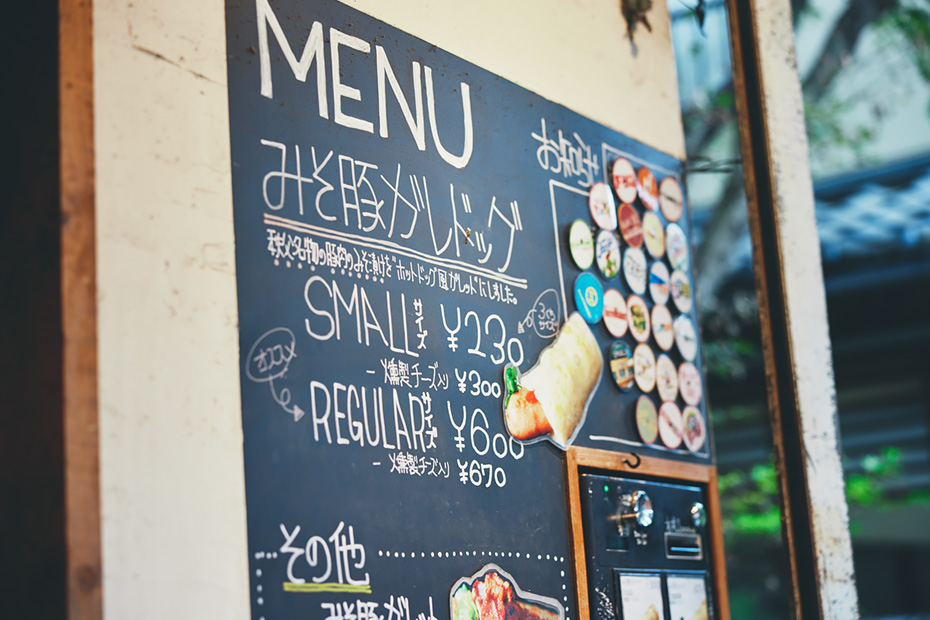 MENU
みそ豚ガレドッグ
秩父名物の豚肉のみそ漬けを"ホットドッグ風ガレット"にしました。
SMALLサイズ ¥230
- 燻製チーズ入り ¥300
REGULARサイズ ¥600
- 燻製チーズ入り ¥670
オススメ
お知らせ
その他
みそ豚ガレット